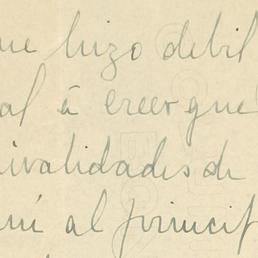 ue hizo debil
al á creer que
ivalidades de
al princip